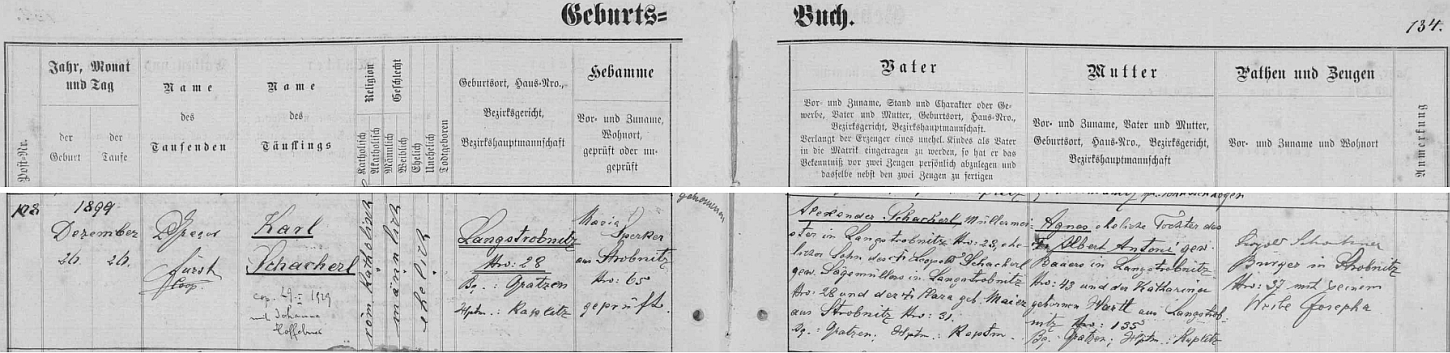 Geburts=
Buch.
134.
Post-Nr.
Jahr, Monat
und Tag
der
Geburt
der
Taufe
Name
des
Taufenden
Name
des
Täuflings
Religion
Katholisch
Akatholisch
Geschlecht
Männlich
Weiblich
Ehelich
Unehelich
Todtgeboren
Geburtsort, Haus-Nro.,
Bezirksgericht,
Bezirkshauptmannschaft
Hebamme
Vor- und Zuname,
Wohnort,
geprüft oder un-
geprüft
Vater
Vor- und Zuname, Stand und Charakter oder Ge-
werbe, Vater und Mutter, Geburtsort, Haus-Nro.,
Bezirksgericht, Bezirkshauptmannschaft.
Verlangt der Erzeuger eines unehel. Kindes als Vater
in die Matrik eingetragen zu werden, so hat er das
Bekenntniß vor zwei Zeugen persönlich abzulegen und
dasselbe nebst den zwei Zeugen zu fertigen
Mutter
Vor- und Zuname, Vater und Mutter,
Geburtsort, Haus-Nro., Bezirksgericht,
Bezirkshauptmannschaft
Pathen und Zeugen
Vor- und Zuname und Wohnort
Anmerkung
1899
Dezember
26. 26.
Fürst
Karl
Schacherl
cop. 29. I 1929
Johanna
röm. katholisch
männlich
ehelich
Langstrobnitz
Nro: 28
Bg.: Gratzen
Hptm.: Kaplitz
genommen
Maria
aus Strobnitz
Nro: 65
geprüft.
Alexander Schacherl, Müllermei-
ster in Langstrobnitz Nro: 28, ehe-
licher Sohn des † Leopold Schacherl
gew. Sägemüllers in Langstrobnitz
Nro: 28 und der † Klara geb. Maier
aus Strobnitz Nro: 31.
Bg.: Gratzen; Hptm.: Kaplitz.
Agnes eheliche Tochter des
† Albert Antoni gew.
Bauers in Langstrobnitz
Nro: 43 und der Katharina
gebornen aus Langstrob-
nitz Nro: 135
Bg.: Gratzen; Hptm.: Kaplitz
Bürger in Strobnitz
Nro: 37 mit seinem
Weibe Josepha